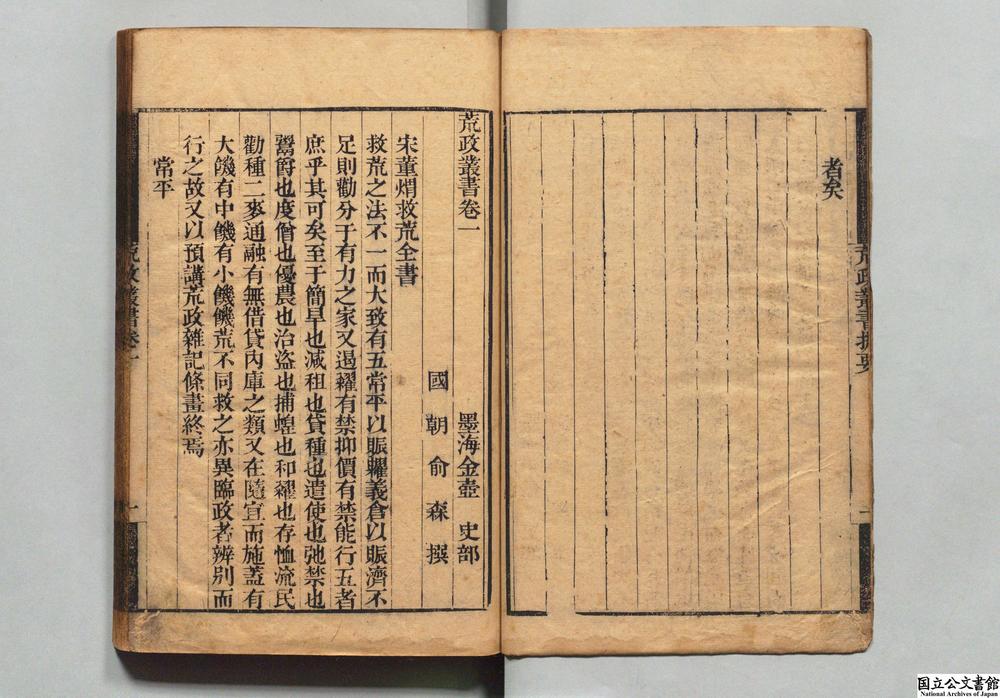 者矣
荒政叢書提要
一
荒政叢書卷一
墨海金壺　史部
國朝俞森撰
宋董煟救荒全書
救荒之法不一而大致有五常平以賑糶義倉以賑濟不
足則勸分于有力之家又遏糴有禁抑價有禁能行五者
庶乎其可矣至于簡旱也減租也貸種也遣使也弛禁也
鬻爵也度僧也優農也治盜也捕蝗也和糴也存恤流民
勸種二麥通融有無借貸內庫之類又在隨宜而施蓋有
大饑有中饑有小饑饑荒不同救之亦異臨政者辨別而
行之故又以預講荒政雜記條畫終焉
常平
荒政叢書卷一
一
国立公文書館
National Archives of Japan